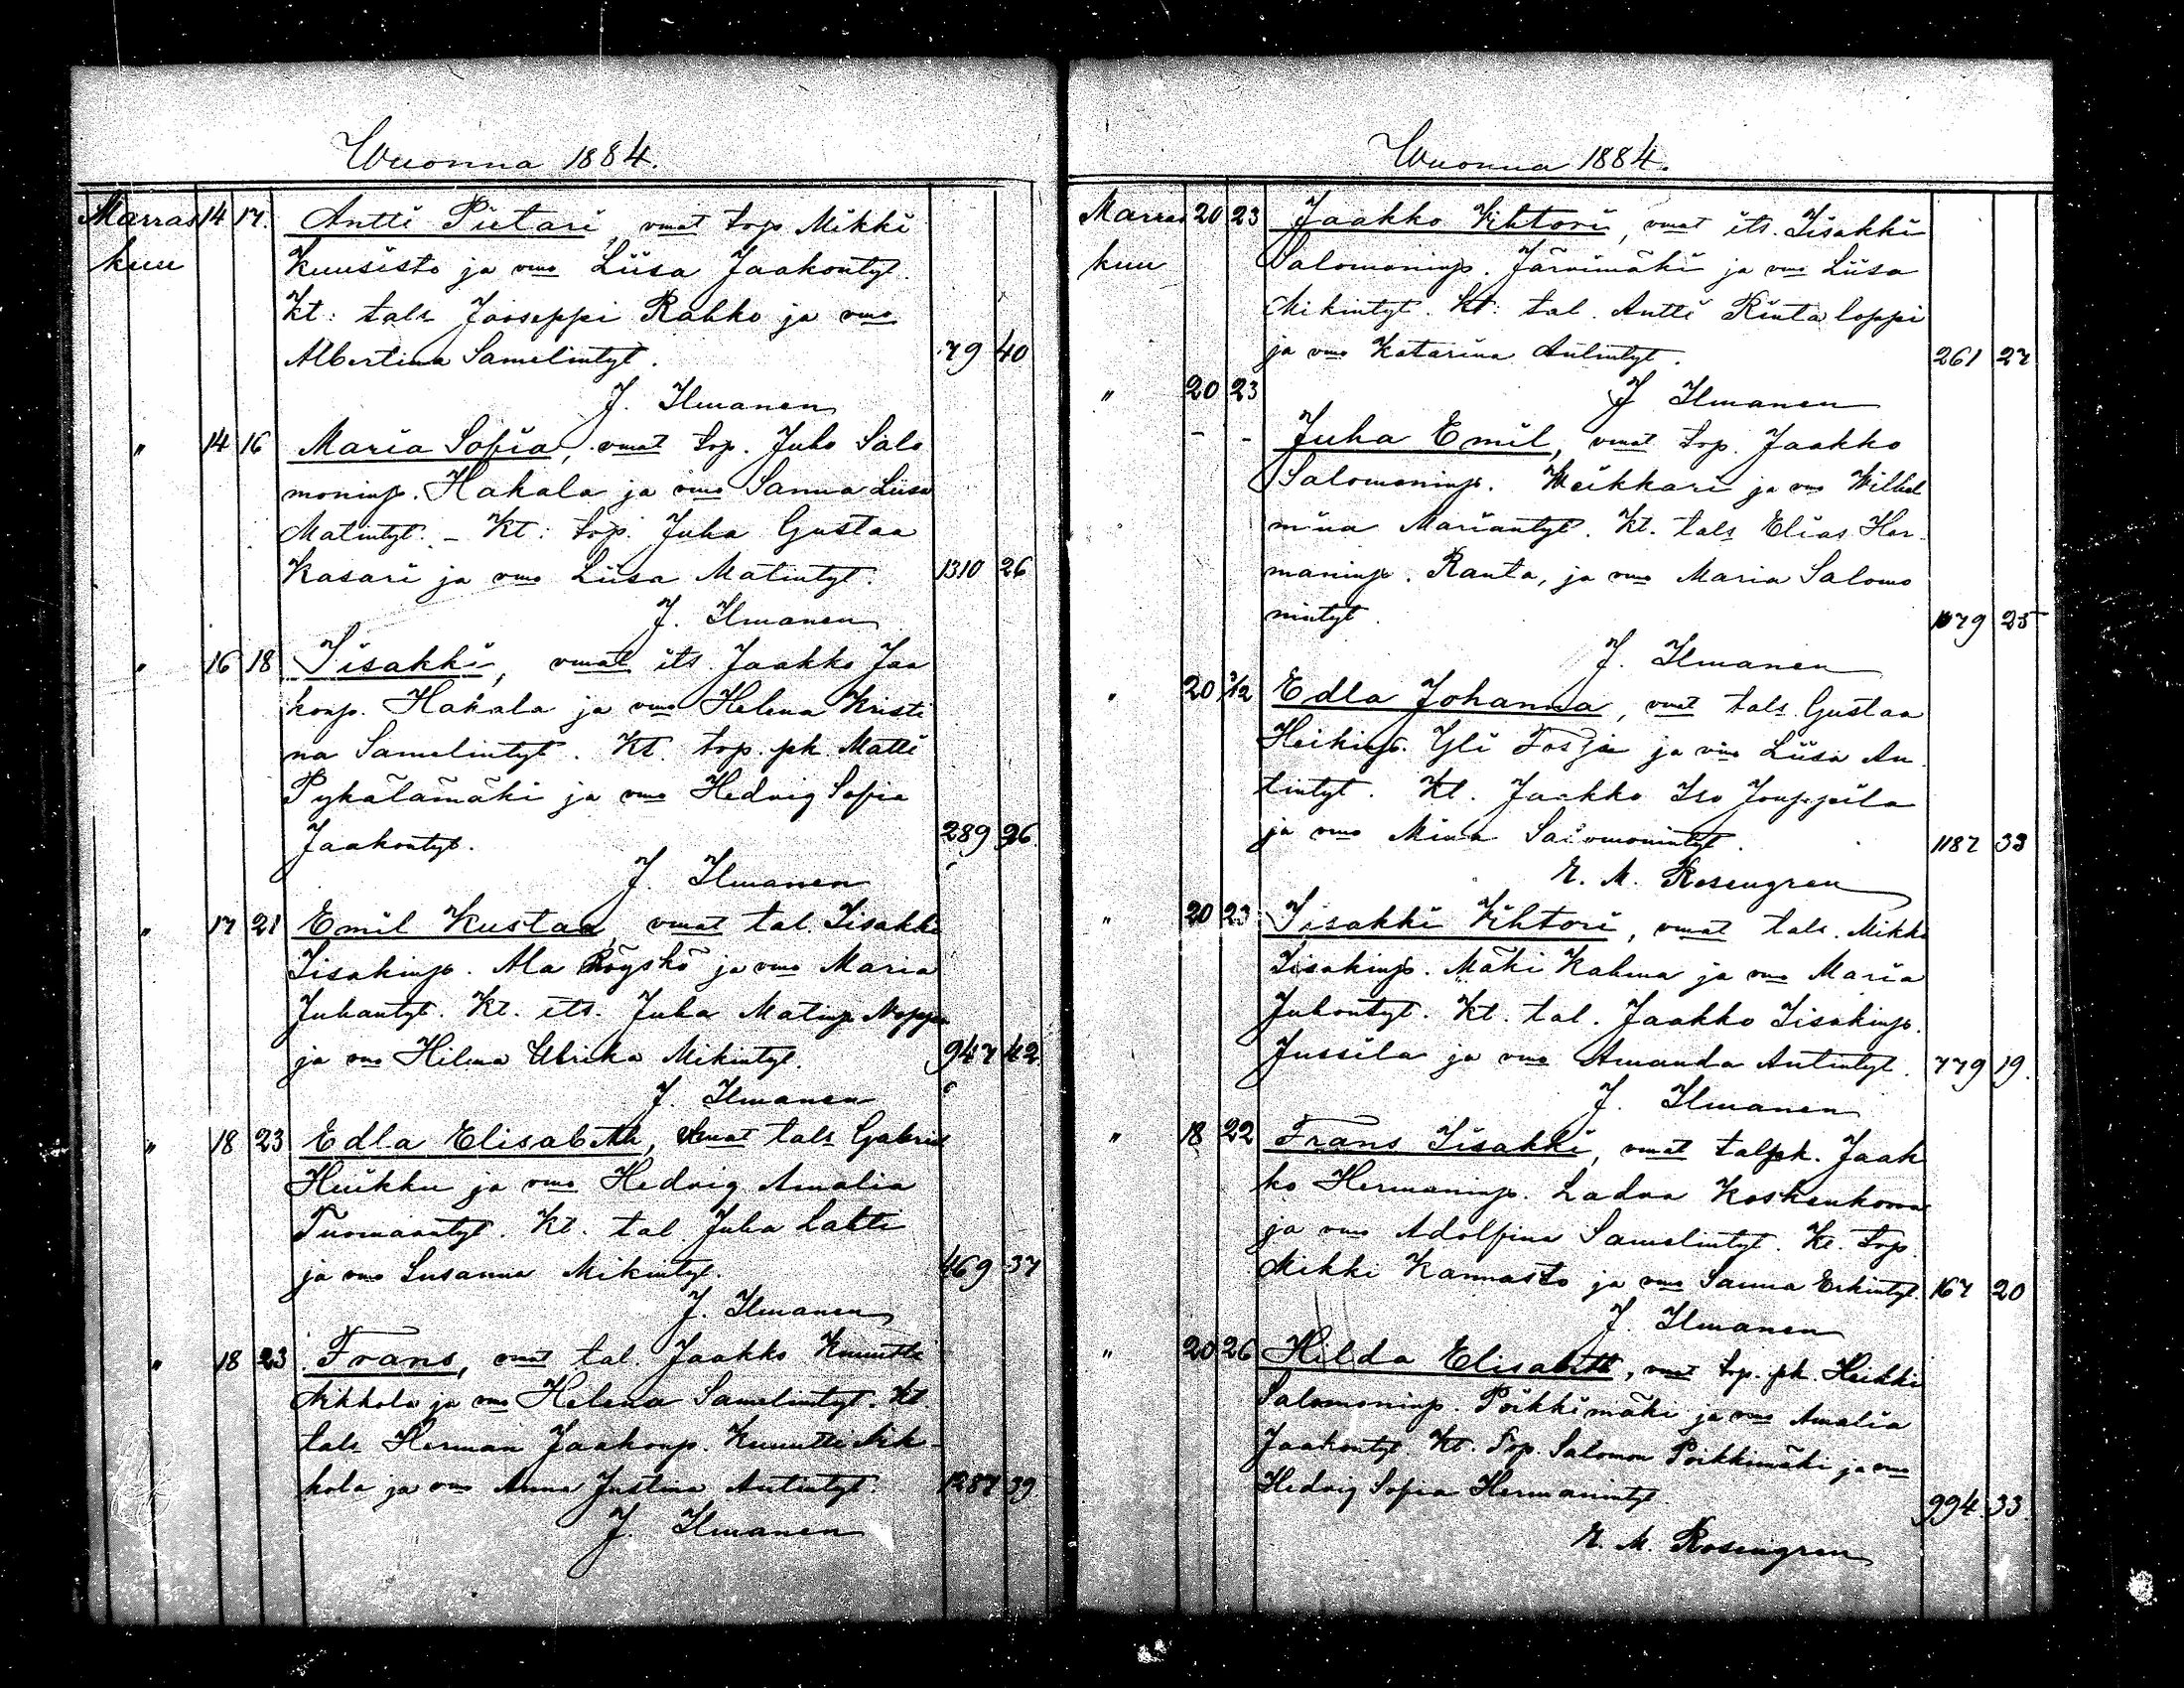 Wuonna 1884.
Marras 14 17. Antti Pietari, vmat top. Mikki
kuu Kuusisto ja vmo Liisa Jaakontyt.
Kt: tals Jooseppi Rahko ja vmo
Albertina Samelintyt. 79 40
J. Ilmanen
" 14 16 Maria Sofia, vmat top. Juho Salo
moninp. Hakala ja vmo Sanna Liisa
Matintyt. - Kt: top. Juha Gustaa
Kasari ja vmo Liisa Matintyt. 1310 26
J. Ilmanen
" 16 18 Iisakki, vmat its. Jaakko Jaa
konp. Hakala ja vmo Helena Kristi
na Samelintyt. Kt. top. pk. Matti
Pykälämäki ja vmo Hedvig Sofia
Jaakontyt. 289 26.
J. Ilmanen
" 17 21 Emil Kustaa, vmat tal. Iisakki
Iisakinp. Ala Röyskö ja vmo Maria
Juhantyt. Kt. its. Juha Matinp.
ja vmo Hilma Ulrika Mikintyt. 947 42.
J. Ilmanen
" 18 23 Edla Elisabeth, vmat tals Gabriel
Huikku ja vmo Hedvig Amalia
Tuomaantyt. Kt. tal. Juha Lahti
ja vmo Susanna Mikintyt. 469 37
J. Ilmanen
" 18 23 Frans, vmat tal. Jaakko Knuutti
Nikkola ja vmo Helena Samelintyt. Kt.
tals Herman Jaakonp. Knuutti Nik-
kola ja vmo Anna Justina Antintyt. 1287 39
J. Ilmanen
Wuonna 1884.
Marras 20 23 Jaakko Vihtori, vmat its. Iisakki
kuu Salomoninp. Järvimäki ja vmo Liisa
Mikintyt. Kt: tal. Antti Rintaloppi
ja vmo Katarina Antintyt. 261 27
" 20 23 J Ilmanen
- - Juha Emil, vmat top. Jaakko
Salomoninp. Weikkari ja vmo Wilhel
mina Mariantyt. Kt. tals Elias Her
maninp. Ranta, ja vmo Maria Salomo
nintyt. 1079 25
J. Ilmanen
" 20 2/12 Edla Johanna, vmat tals Gustaa
Heikinp. Yli ja vmo Liisa An
tintyt. Kt. Jaakko Iso Jouppila
ja vmo Miina Salomonintyt. 1187 33
E. M. Rosengren
" 20 23 Iisakki Vihtori, vmat tals. Mikki
Iisakinp. Mäki Kahma ja vmo Maria
Juhontyt. Kt. tal. Jaakko Iisakinp.
Jussila ja vmo Amanda Antintyt. 779 19.
J. Ilmanen
" 18 22 Frans Iisakki, vmat talpk. Jaak
ko Hermaninp. Ladva Koskenkorva
ja vmo Adolfina Samelintyt. Kt. top.
Mikki Kannasto ja vmo Sanna Erkintyt. 167 20
J. Ilmanen
" 20 26 Hilda Elisabett, vmat top. pk. Heikki
Salomoninp. Poikkimäki ja vmo Amalia
Jaakontyt. Kt. Top. Salomon Poikkimäki ja vmo
Hedvig Sofia Hermanintyt. 994 33.
E. M. Rosengren